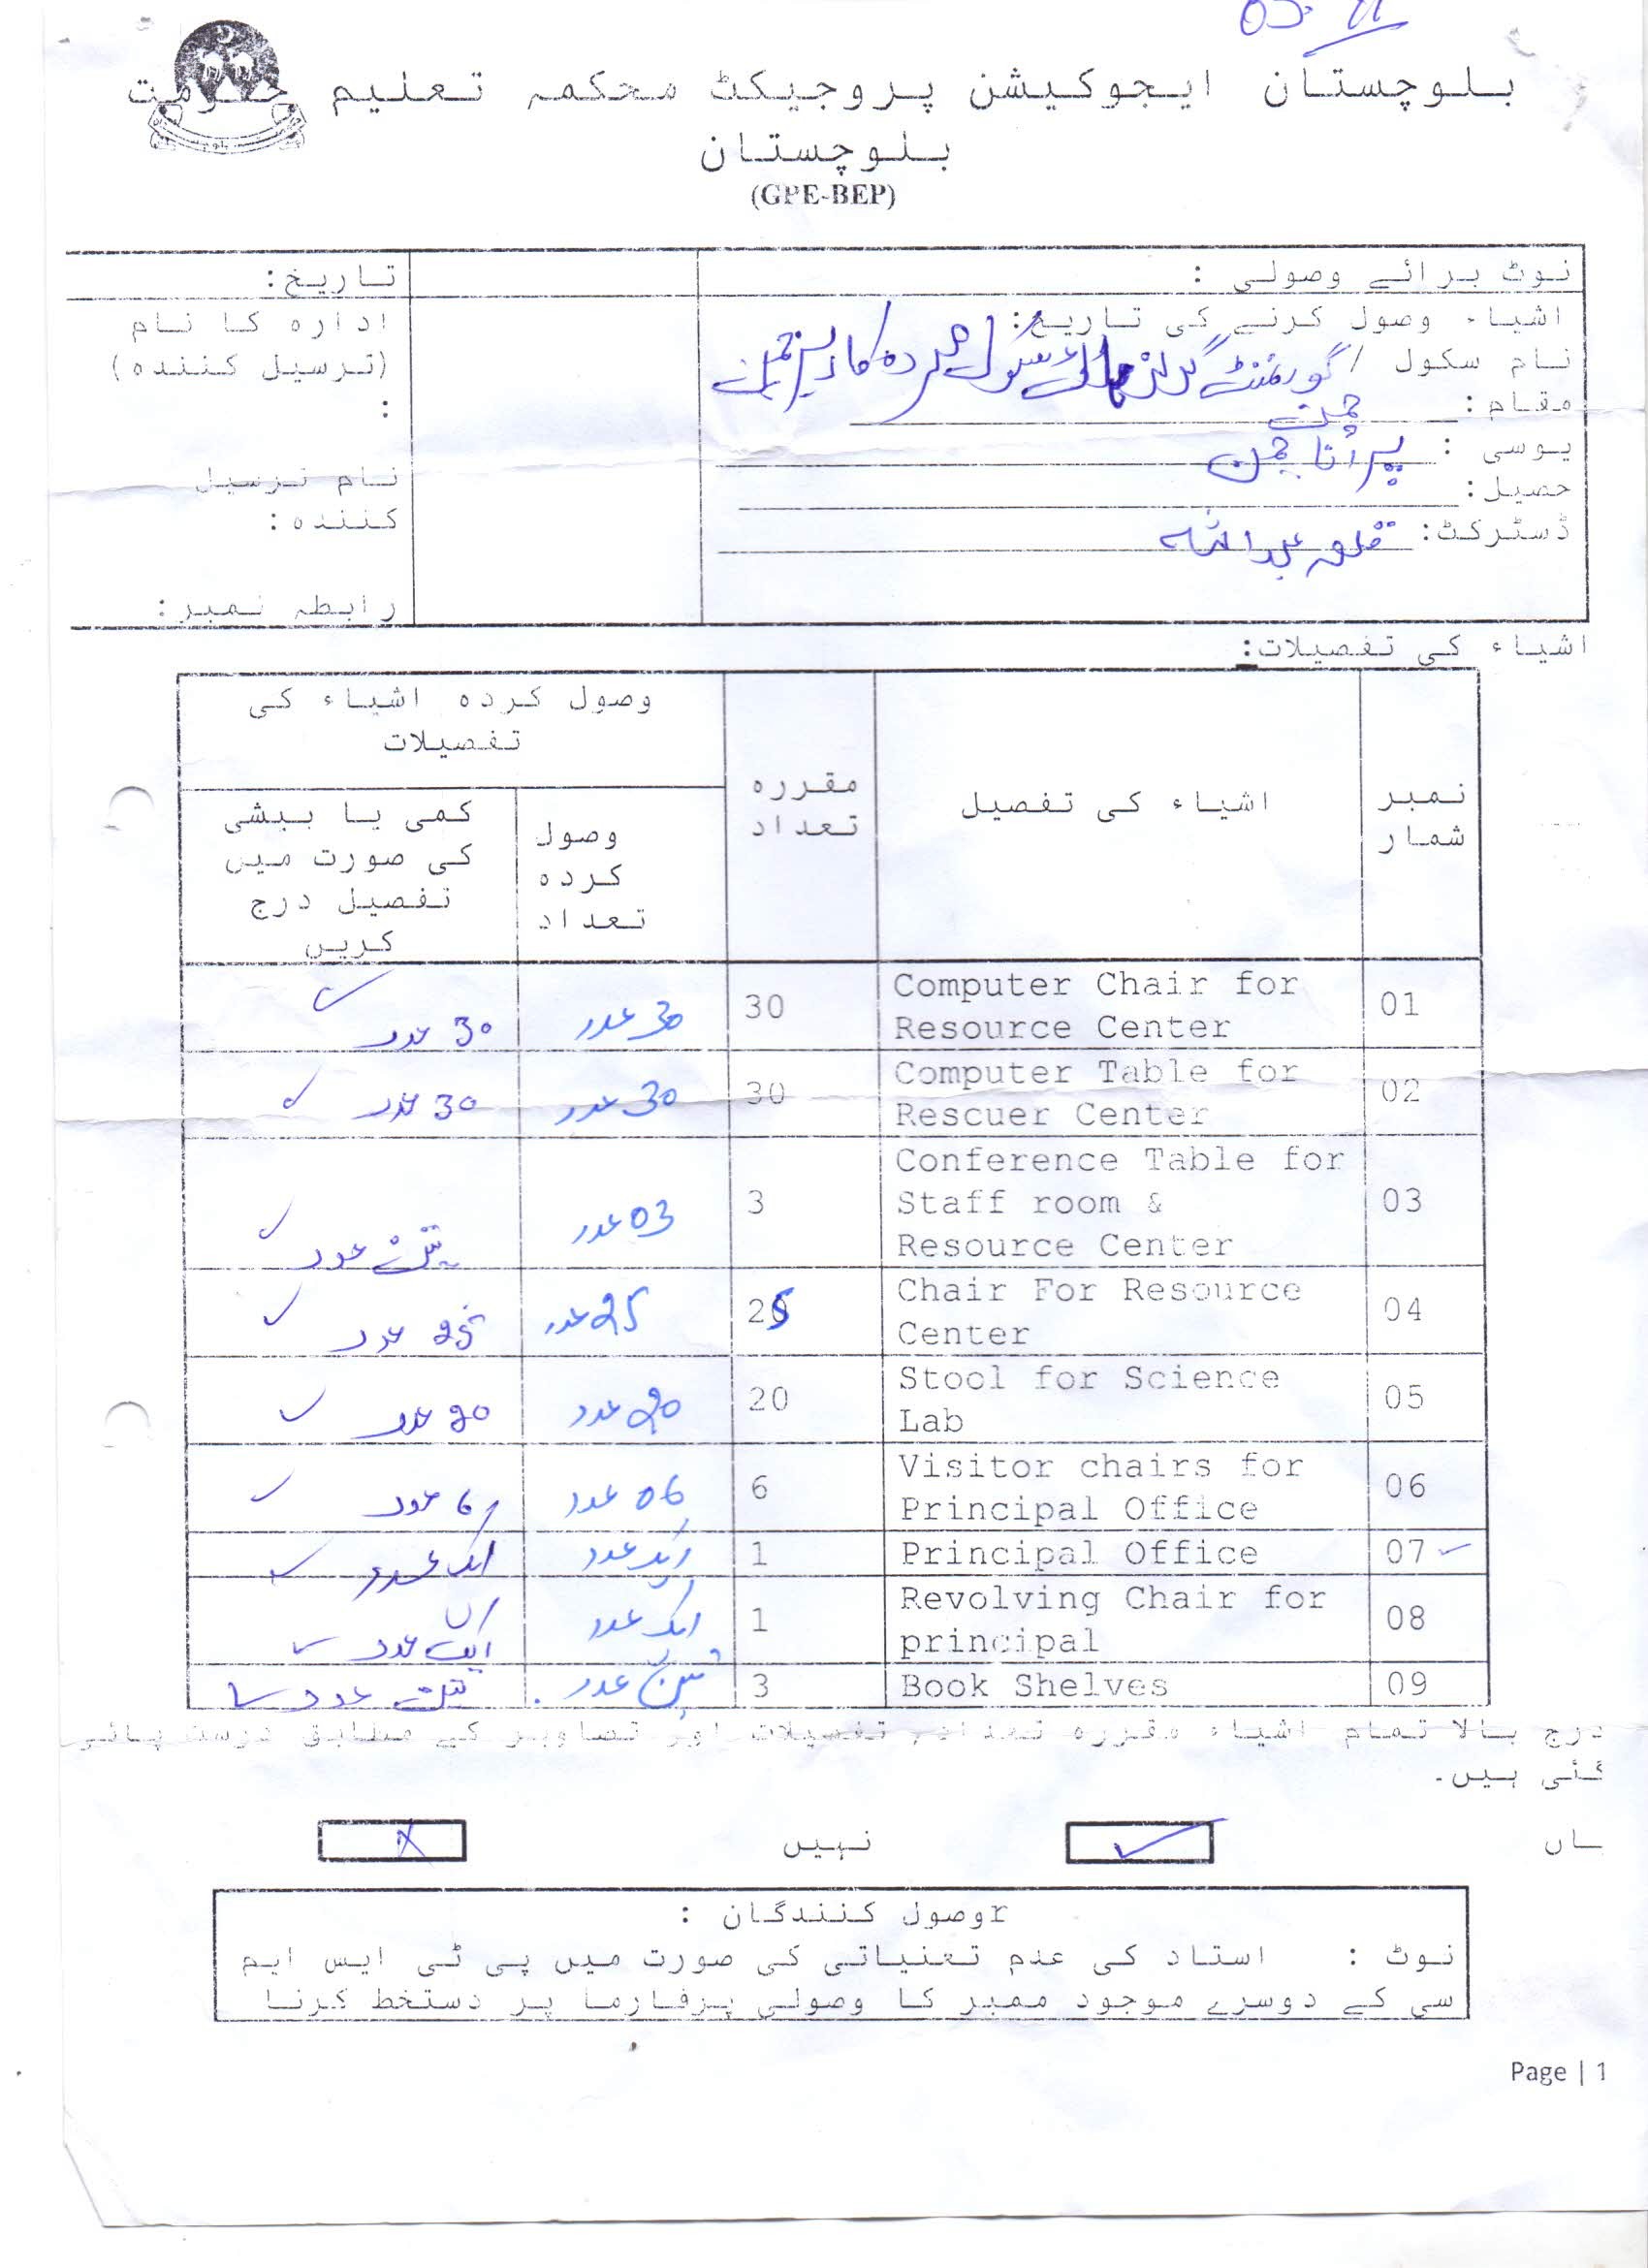 بلوچستان ایجوکیشن پروجیکٹ محکمہ تعلیم حکومت
بلوچستان
(GPE-BEP)
نوٹ برائے وصولی :
تاریخ:
اشیاء وصول کرنے کی تاریخ:
نام سکول / گورنمنٹ گرلز ہائی سکول
مقام: چمن
یوسی : پرانا چمن
حصیل:
ڈسٹرکٹ: قلعہ عبداللہ
ادارہ کا نام
(ترسیل کنندہ)
:
نام ترسیل
کنندہ:
رابطہ نمبر:
اشیاء کی تفصیلات:
نمبر شمار
اشیاء کی تفصیل
مقررہ تعداد
وصول کردہ اشیاء کی تفصیلات
وصول کردہ تعداد
کمی یا بیشی کی صورت میں تفصیل درج کریں
01 Computer Chair for Resource Center 30 30 عدد 30 عدد
02 Computer Table for Rescuer Center 30 30 عدد 30 عدد
03 Conference Table for Staff room & Resource Center 3 03 عدد تین عدد
04 Chair For Resource Center 25 25 عدد 25 عدد
05 Stool for Science Lab 20 20 عدد 20 عدد
06 Visitor chairs for Principal Office 6 06 عدد 6 عدد
07 Principal Office 1 ایک عدد ایک عدد
08 Revolving Chair for principal 1 ایک عدد ایک عدد
09 Book Shelves 3 تین عدد تین عدد
درج بالا تمام اشیاء مقررہ تعداد، تفصیلات اور تصاویر کے مطابق درست پائی
گئی ہیں۔
ہاں
نہیں
rوصول کنندگان :
نوٹ : استاد کی عدم تعنیاتی کی صورت میں پی ٹی ایس ایم
سی کے دوسرے موجود ممبر کا وصولی پرفارما پر دستخط کرنا
Page | 1